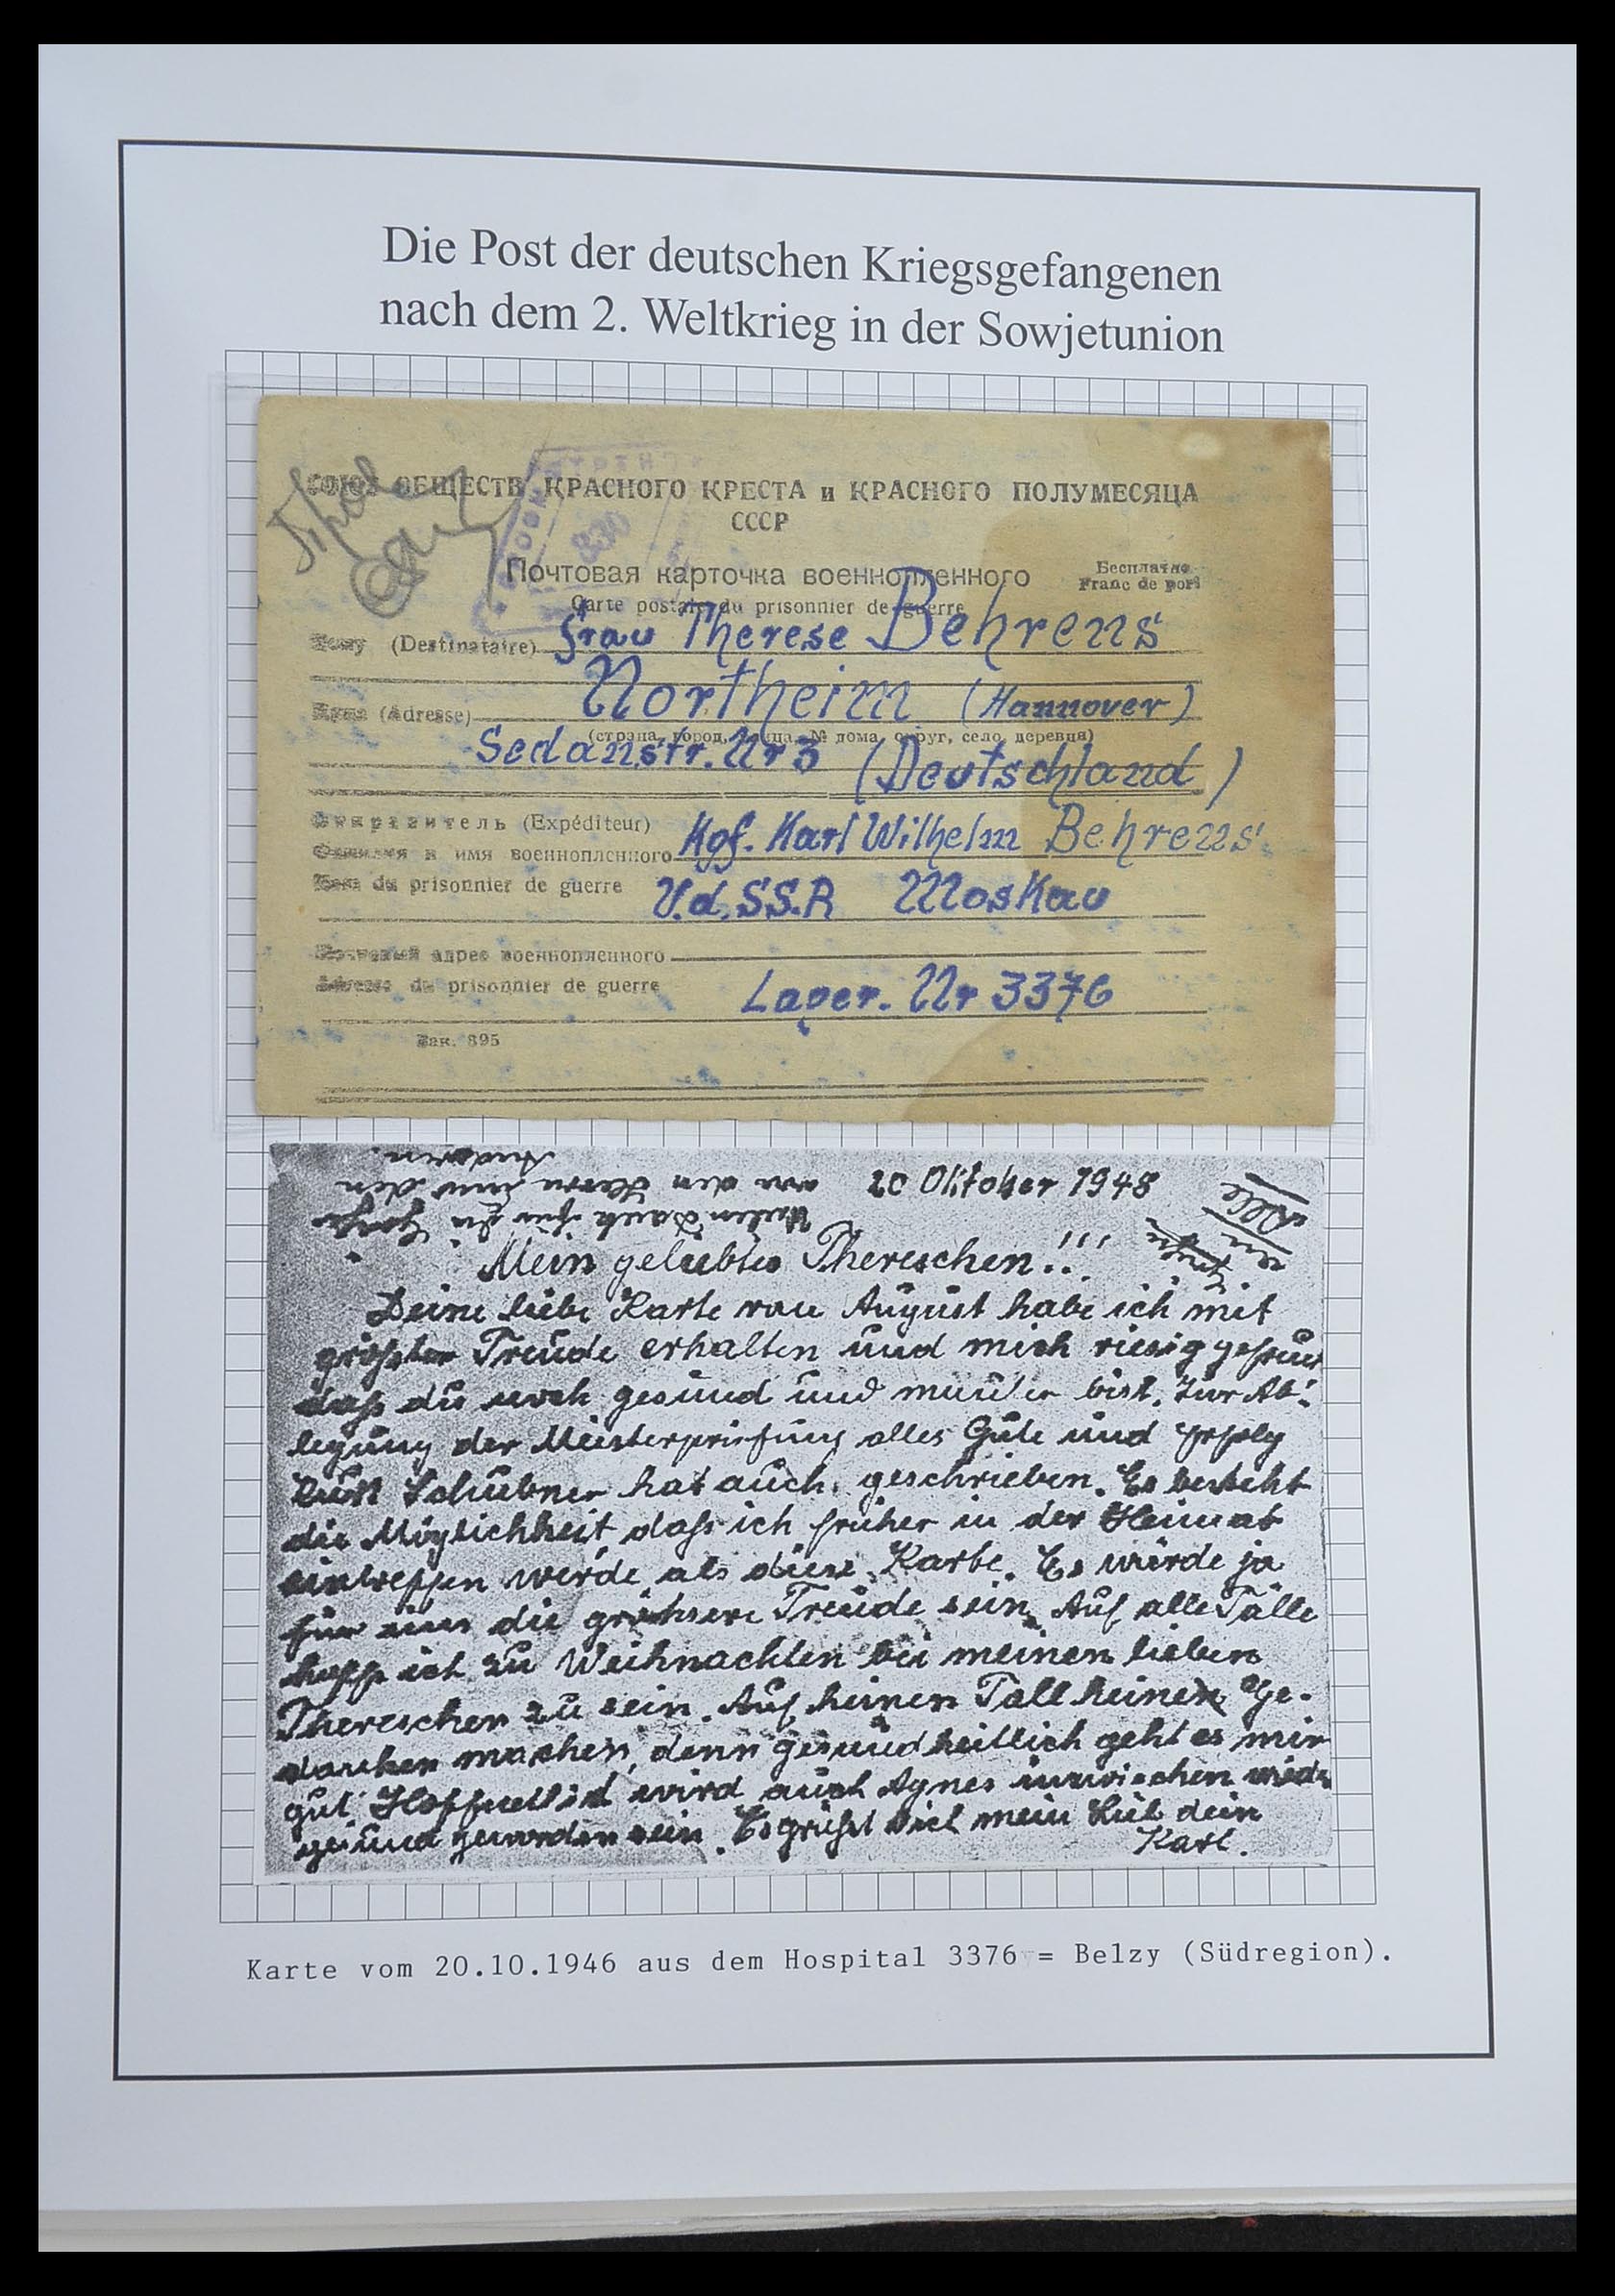 Die Post der deutschen Kriegsgefangenen
nach dem 2. Weltkrieg in der Sowjetunion
СОЮЗ ОБЩЕСТВ КРАСНОГО КРЕСТА и КРАСНОГО ПОЛУМЕСЯЦА
СССР
830
Почтовая карточка военнопленного
Бесплатно
Franc de port
Carte postale du prisonnier de guerre
Кому (Destinataire) Frau Therese Behrens
Northeim (Hannover)
Куда (Adresse)
(страна, город, улица, № дома, округ, село, деревня)
Sedanstr. Nr 3 (Deutschland)
Отправитель (Expéditeur)
Фамилия и имя военнопленного Kgf. Karl Wilhelm Behrens
Nom du prisonnier de guerre U.d.SS.R Moskau
Почтовый адрес военнопленного
Adresse du prisonnier de guerre Lager. Nr 3376
Зак. 895
20 Oktober 1948
Alle
Vielen Dank für die
von den Herrn und den
Anderen.
Mein geliebtes Thereschen!!!
Deine liebe Karte von August habe ich mit
größter Freude erhalten und mich riesig gefreut
daß du noch gesund und munter bist. Zur Ab-
legung der Meisterprüfung alles Gute und
Kurt Schübner hat auch geschrieben. Es besteht
die Möglichkeit, daß ich früher in der Heimat
eintreffen werde als diese Karte. Es würde ja
für uns die größere Freude sein. Auf alle Fälle
hoffe ich zu Weihnachten bei meinen lieben
Thereschen zu sein. Auf keinen Fall keinen Ge-
danken machen, denn gesundheitlich geht es mir
gut. Hoffentlich wird auch Agnes inzwischen wieder
gesund geworden sein. Es grüßt dich mein Lieb dein
Karl.
Karte vom 20.10.1946 aus dem Hospital 3376 = Belzy (Südregion).